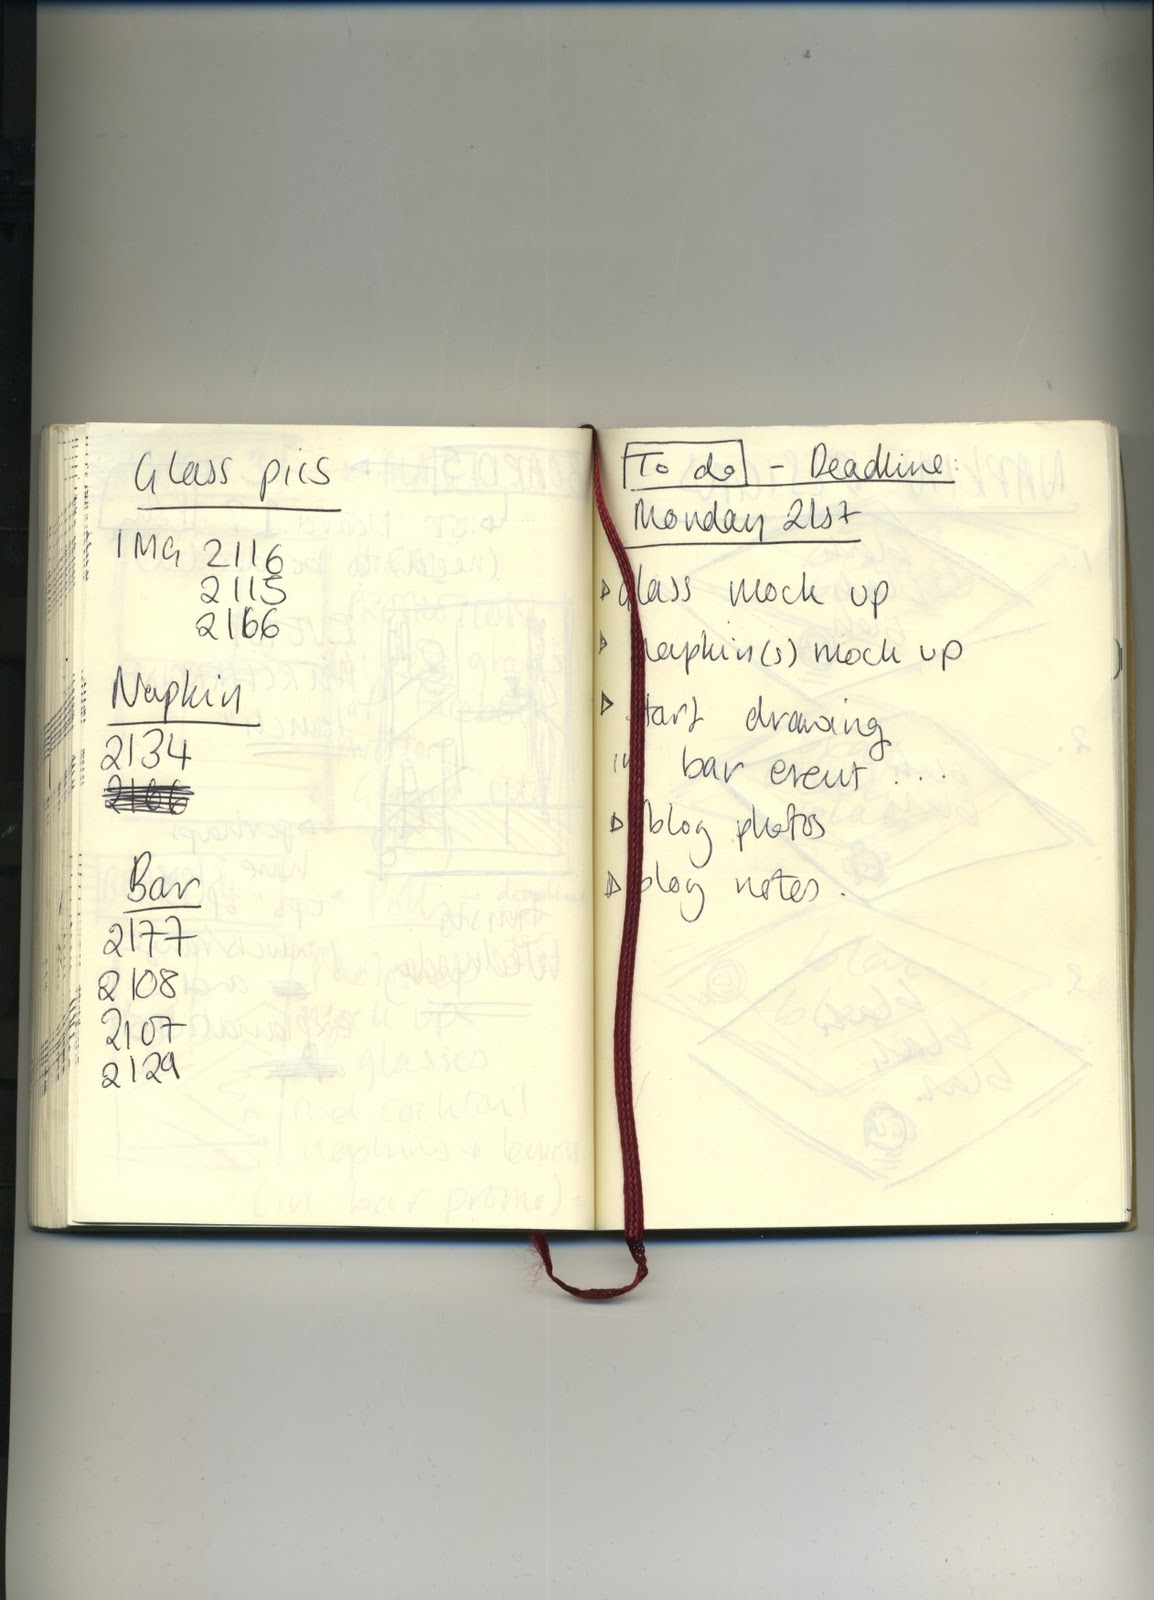 Glass pics
IMG 2116
2115
2166
Napkin
2134
Bar
2177
2108
2107
2129
To do - Deadline:
Monday 21st
glass mock up
napkin(s) mock up
start drawing
bar event ...
blog photos
blog notes.